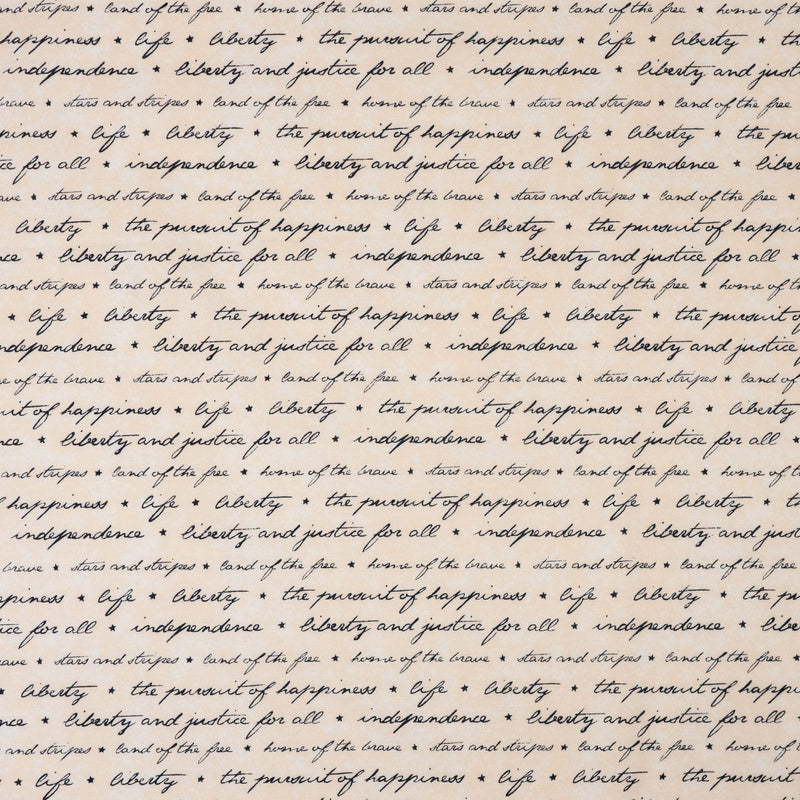 and stripes ★ land of the free ★ home of the brave ★ stars and stripes ★ land of the free ★ home of th
happiness ★ life ★ liberty ★ the pursuit of happiness ★ life ★ liberty ★ th
independence ★ liberty and justice for all ★ independence ★ liberty and just
brave ★ stars and stripes ★ land of the free ★ home of the brave ★ stars and stripes ★ land of the free
piness ★ life ★ liberty ★ the pursuit of happiness ★ life ★ liberty ★ the pu
ice for all ★ independence ★ liberty and justice for all ★ independence ★ liber
ave ★ stars and stripes ★ land of the free ★ home of the brave ★ stars and stripes ★ land of the free ★
liberty ★ the pursuit of happiness ★ life ★ liberty ★ the pursuit of happin
nce ★ liberty and justice for all ★ independence ★ liberty and justice for all ★
and stripes ★ land of the free ★ home of the brave ★ stars and stripes ★ land of the free ★ home of th
★ life ★ liberty ★ the pursuit of happiness ★ life ★ liberty ★ the pursuit o
ndependence ★ liberty and justice for all ★ independence ★ liberty and justice
e of the brave ★ stars and stripes ★ land of the free ★ home of the brave ★ stars and stripes ★ land of
uit of happiness ★ life ★ liberty ★ the pursuit of happiness ★ life ★ liberty
nce ★ liberty and justice for all ★ independence ★ liberty and justice for all ★
and stripes ★ land of the free ★ home of the brave ★ stars and stripes ★ land of the free ★ home of t
f happiness ★ life ★ liberty ★ the pursuit of happiness ★ life ★ liberty ★ th
independence ★ liberty and justice for all ★ independence ★ liberty and just
brave ★ stars and stripes ★ land of the free ★ home of the brave ★ stars and stripes ★ land of the free
ppiness ★ life ★ liberty ★ the pursuit of happiness ★ life ★ liberty ★ the p
ice for all ★ independence ★ liberty and justice for all ★ independence ★ libe
ave ★ stars and stripes ★ land of the free ★ home of the brave ★ stars and stripes ★ land of the free ★
★ liberty ★ the pursuit of happiness ★ life ★ liberty ★ the pursuit of happi
nce ★ liberty and justice for all ★ independence ★ liberty and justice for all
and stripes ★ land of the free ★ home of the brave ★ stars and stripes ★ land of the free ★ home of
★ life ★ liberty ★ the pursuit of happiness ★ life ★ liberty ★ the pursuit